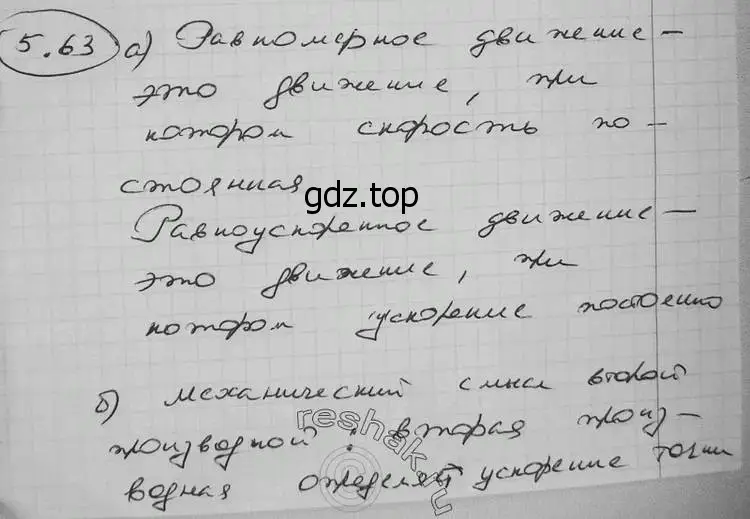 5.63 а) Равномерное движение –
это движение, при
котором скорость по-
стоянная
gdz.top
Равноускоренное движение –
это движение, при
котором ускорение постоенно
б) механический смысл второй
производной: вторая произ-
водная определяет ускорение точки
reshak.ru